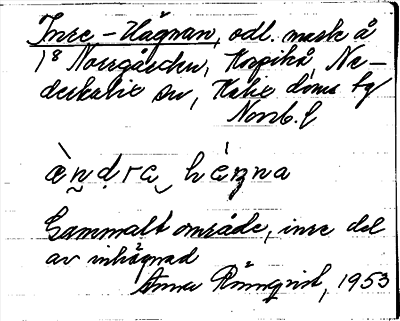 Inre-Hägnan, odl. mark å
1⁸ Norrgården, Korpikå, Ne-
derkalix sn, Kalix doms. tg
Norrb. l
ὰn̰ḍra‿ háṇna
Gammalt område, inre del
av inhägnad
Anna Rönnqvist, 1953